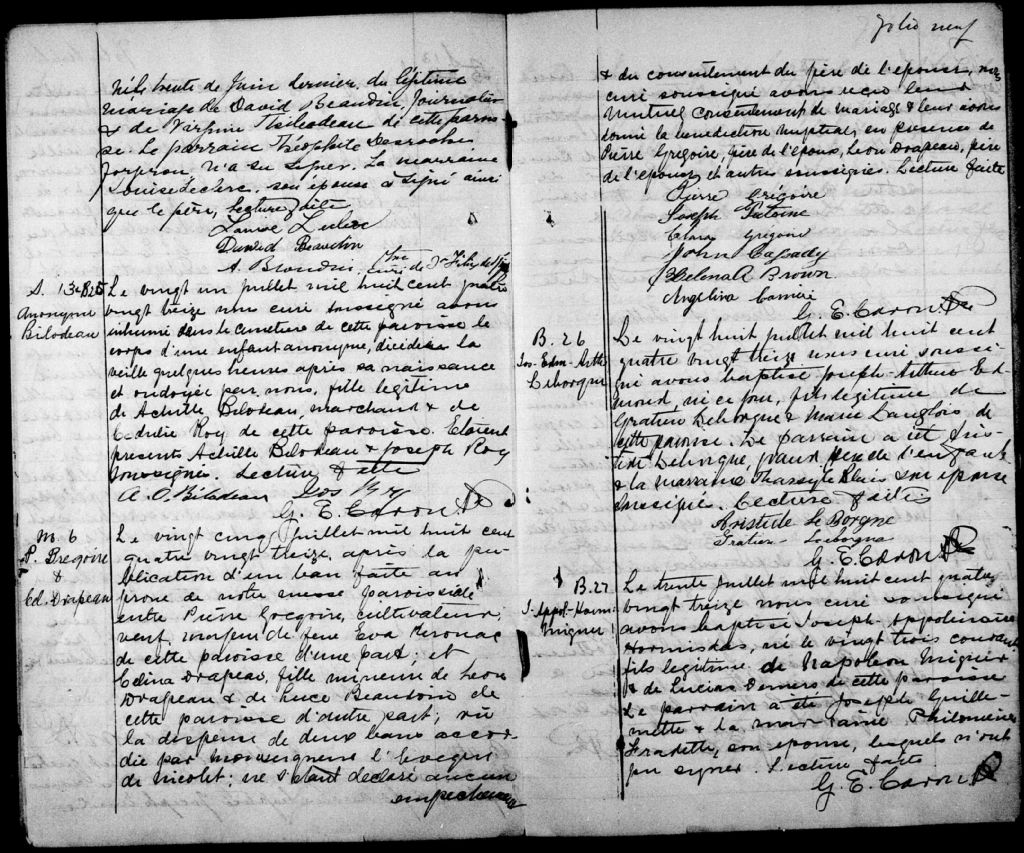 folio neuf
né le trente de Juin dernier, du légitime
mariage de David Beaudin, Journalier
& de Virginie Thibodeau de cette parois
se. Le parrain Théophile Desroches
n'a su signer. La marraine
Louise Leclerc. son épouse a signé ainsi
que le père, Lecture faite
Louise Leclerc
David Beaudin
A. Blondin
S. 13
Anonyme
Bilodeau
Le vingt un juillet mil huit cent quatre
vingt treize nous curé soussigné avons
inhumé dans le cimetière de cette paroisse le
corps d'une enfant anonyme, décédée la
veille quelques heures après sa naissance
et ondoyée par nous, fille legitime
de Achille Bilodeau, marchand & de
Cédulie Roy de cette paroisse. Etaient
presents Achille Bilodeau & Joseph Roy
soussignés. Lecture faite
A. O. Bilodeau Jos Roy
G. E. Caron Ptre
M. 6
P. Gregoire
&
Cd. Drapeau
Le vingt cinq Juillet mil huit cent
quatre vingt treize, après la pu-
blication d'un ban faite au
prone de notre messe paroissiale
entre Pierre Gregoire, cultivateur,
veuf, majeur de feue Eva
de cette paroisse d'une part; et
Edina Drapeau, fille mineure de Leon
Drapeau & de Luce Beaudoin de
cette paroisse d'autre part; vu
la dispense de deux bans accor-
dée par monseigneur l'évèque
de Nicolet; ne s'étant déclaré aucun
empêchement
& du consentement du père de l'épouse, nous
curé soussigné avons reçu leur
mutuel consentement de mariage & leur avons
donné la benediction nuptial; en presence de
Pierre Gregoire, père de l'époux, Leon Drapeau, père
de l'épouse et autres soussignés. Lecture faite
Pierre Grégoire
Joseph Fontaine
Clara Grégoire
John Cassady
Helena A Brown
Angelina
G. E. Caron Ptre
B. 26
Jos-Edm-Arth
Leborgne
Le vingt huit juillet mil huit cent
quatre vingt treize nous curé soussi-
gné avons baptisé Joseph-Arthur Ed-
mond, né ce jour, fils legitime de
Gratien Leborgne & Marie Langlois de
cette paroisse. Le parrain a été Aris-
tide Leborgne, grand père de l'enfant
& la marraine Tharsyle Blais son épouse
soussigné. Lecture faite
Aristide Le Borgne
Gratien Leborgne
G. E. Caron Ptre
B. 27
J-Appol-Horm
Mignier
Le trente juillet mil huit cent quatre
vingt treize nous curé soussigné
avons baptisé Joseph, Appolinaire
Hormisdas, né le vingt trois courant
fils legitime de Napoleon Mignier
& de Lucias Demers de cette paroisse
Le parrain a été Joseph Guille-
mette & la marraine Philomène
Fradette, son épouse, lesquels n'ont
pu signer. Lecture faite
G. E. Caron Ptre